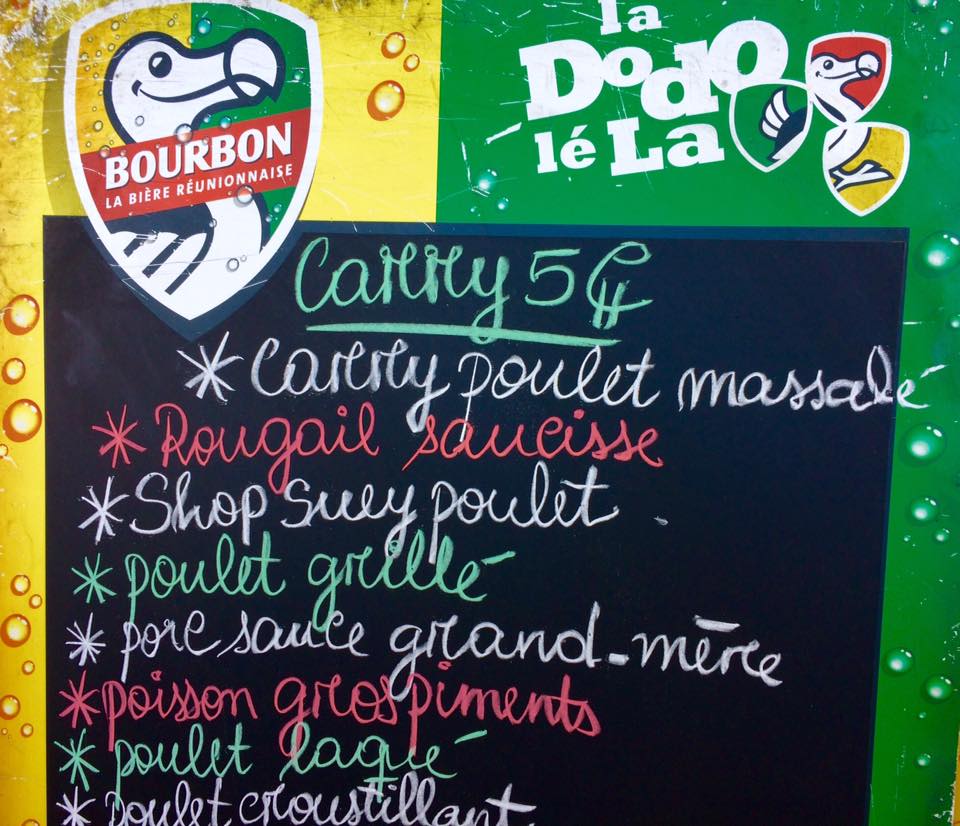 BOURBON
LA BIÈRE RÉUNIONNAISE
la
Dodo
lé La
Carry 5 €
* Carry poulet massalé
* Rougail saucisse
* Shop Suey poulet
* poulet grillé
* porc sauce grand-mère
* poisson gros piments
* poulet laqué
* poulet croustillant